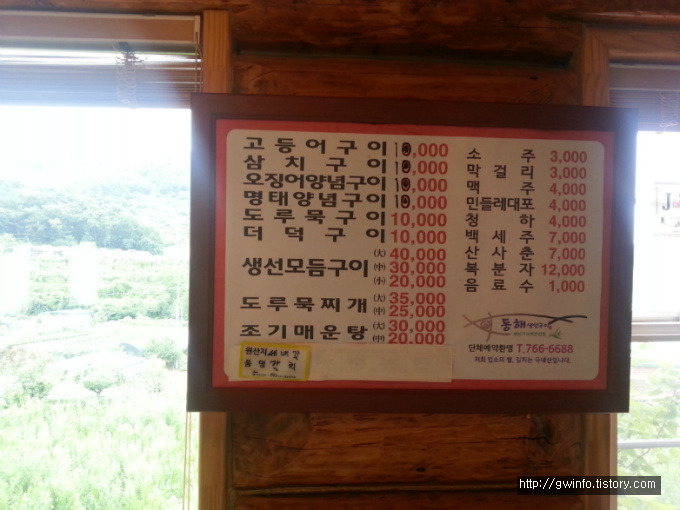 고등어구이 10,000
삼치구이 10,000
오징어양념구이 10,000
명태양념구이 10,000
도루묵구이 10,000
더덕구이 10,000
생선모듬구이 (大) 40,000
(中) 30,000
(小) 20,000
도루묵찌개 (大) 35,000
(中) 25,000
조기매운탕 (大) 30,000
(中) 20,000
원산지
소주 3,000
막걸리 3,000
맥주 4,000
민들레대포 4,000
청하 4,000
백세주 7,000
산사춘 7,000
복분자 12,000
음료수 1,000
동해생선구이
단체예약환영 T.766-6688
저희 업소의 쌀, 김치는 국내산입니다.
http://gwinfo.tistory.com